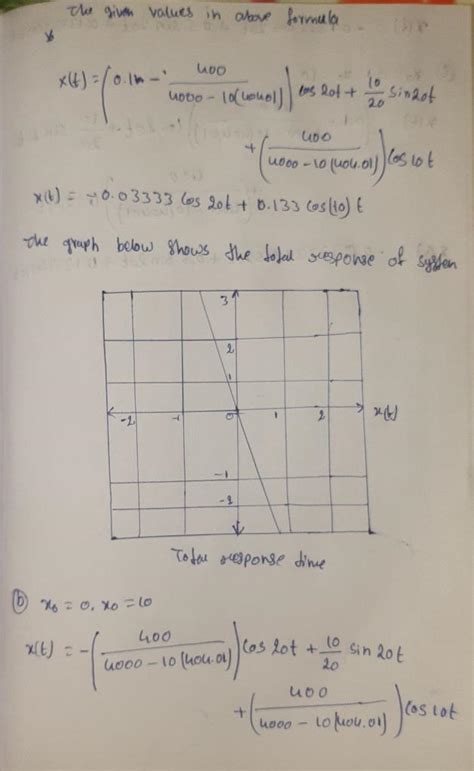 The given values in above formula
x(t) = (0.1 - 400/(4000 - 10(404.01))) cos 20t + 10/20 sin 20t
+ (400/(4000 - 10(404.01))) cos 10t
x(t) = -0.03333 cos 20t + 0.133 cos(10)t
The graph below shows the total response of system
3
2
1
-2 -1 0 1 2 x(t)
-1
-2
Total response time
(b) x₀ = 0, x₀ = 10
x(t) = -(400/(4000 - 10(404.01))) cos 20t + 10/20 sin 20t
+ (400/(4000 - 10(404.01))) cos 10t